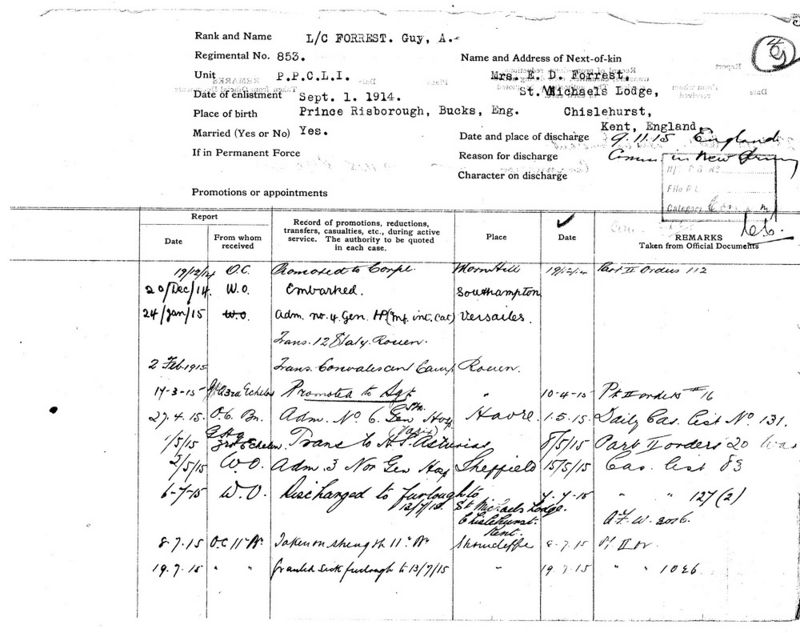 Rank and Name L/C FORREST. Guy, A.
Regimental No. 853.
Unit P.P.C.L.I.
Name and Address of Next-of-kin
Mrs. E. D. Forrest,
St. Michaels Lodge,
Chislehurst,
Kent, England,
Date of enlistment Sept. 1. 1914.
Place of birth Prince Risborough, Bucks, Eng.
Married (Yes or No) Yes.
If in Permanent Force
Date and place of discharge 9.11.15 England
Reason for discharge in New
Character on discharge
Promotions or appointments
Report
Date
From whom received
Record of promotions, reductions,
transfers, casualties, etc., during active
service. The authority to be quoted
in each case.
Place
Date
REMARKS
Taken from Official Documents
19/12/14 O.C. Promoted to Corpl Morn Hill Part II Orders 112
20/Dec/14. W.O. Embarked. Southampton
24/Jan/15 W.O. Adm. no. 4. Gen. Versailes.
Trans. 12 Rouen.
2 Feb 1915 Trans. Convalescent Camp Rouen.
17-3-15 3rd Echelon Promoted to Sgt " 10-4-15 Pt II orders #16
27.4.15. O.C. Bn. Adm. No 6 Gen Hosp Havre 1.5.15 Daily Cas. list No. 131.
1/5/15 G.H.Q. 3rd Echelon Trans to H.S. Asturias 8/5/15 Part II orders 20
2/5/15 W.O. Adm 3 Nor Gen Hosp Sheffield 15/5/15 Cas. list 83
6-7-15 W.O. Discharged to furlough to 12/7/15. St Michaels Lodge. Chislehurst. Kent. 7-7-15 " " 127 (2)
A.F.W. 3016.
8.7.15 O.C. 11th Taken on strength 11th Shorncliffe 8.7.15
19.7.15 " " Granted sick furlough to 13/7/15 " 19.7.15 " "